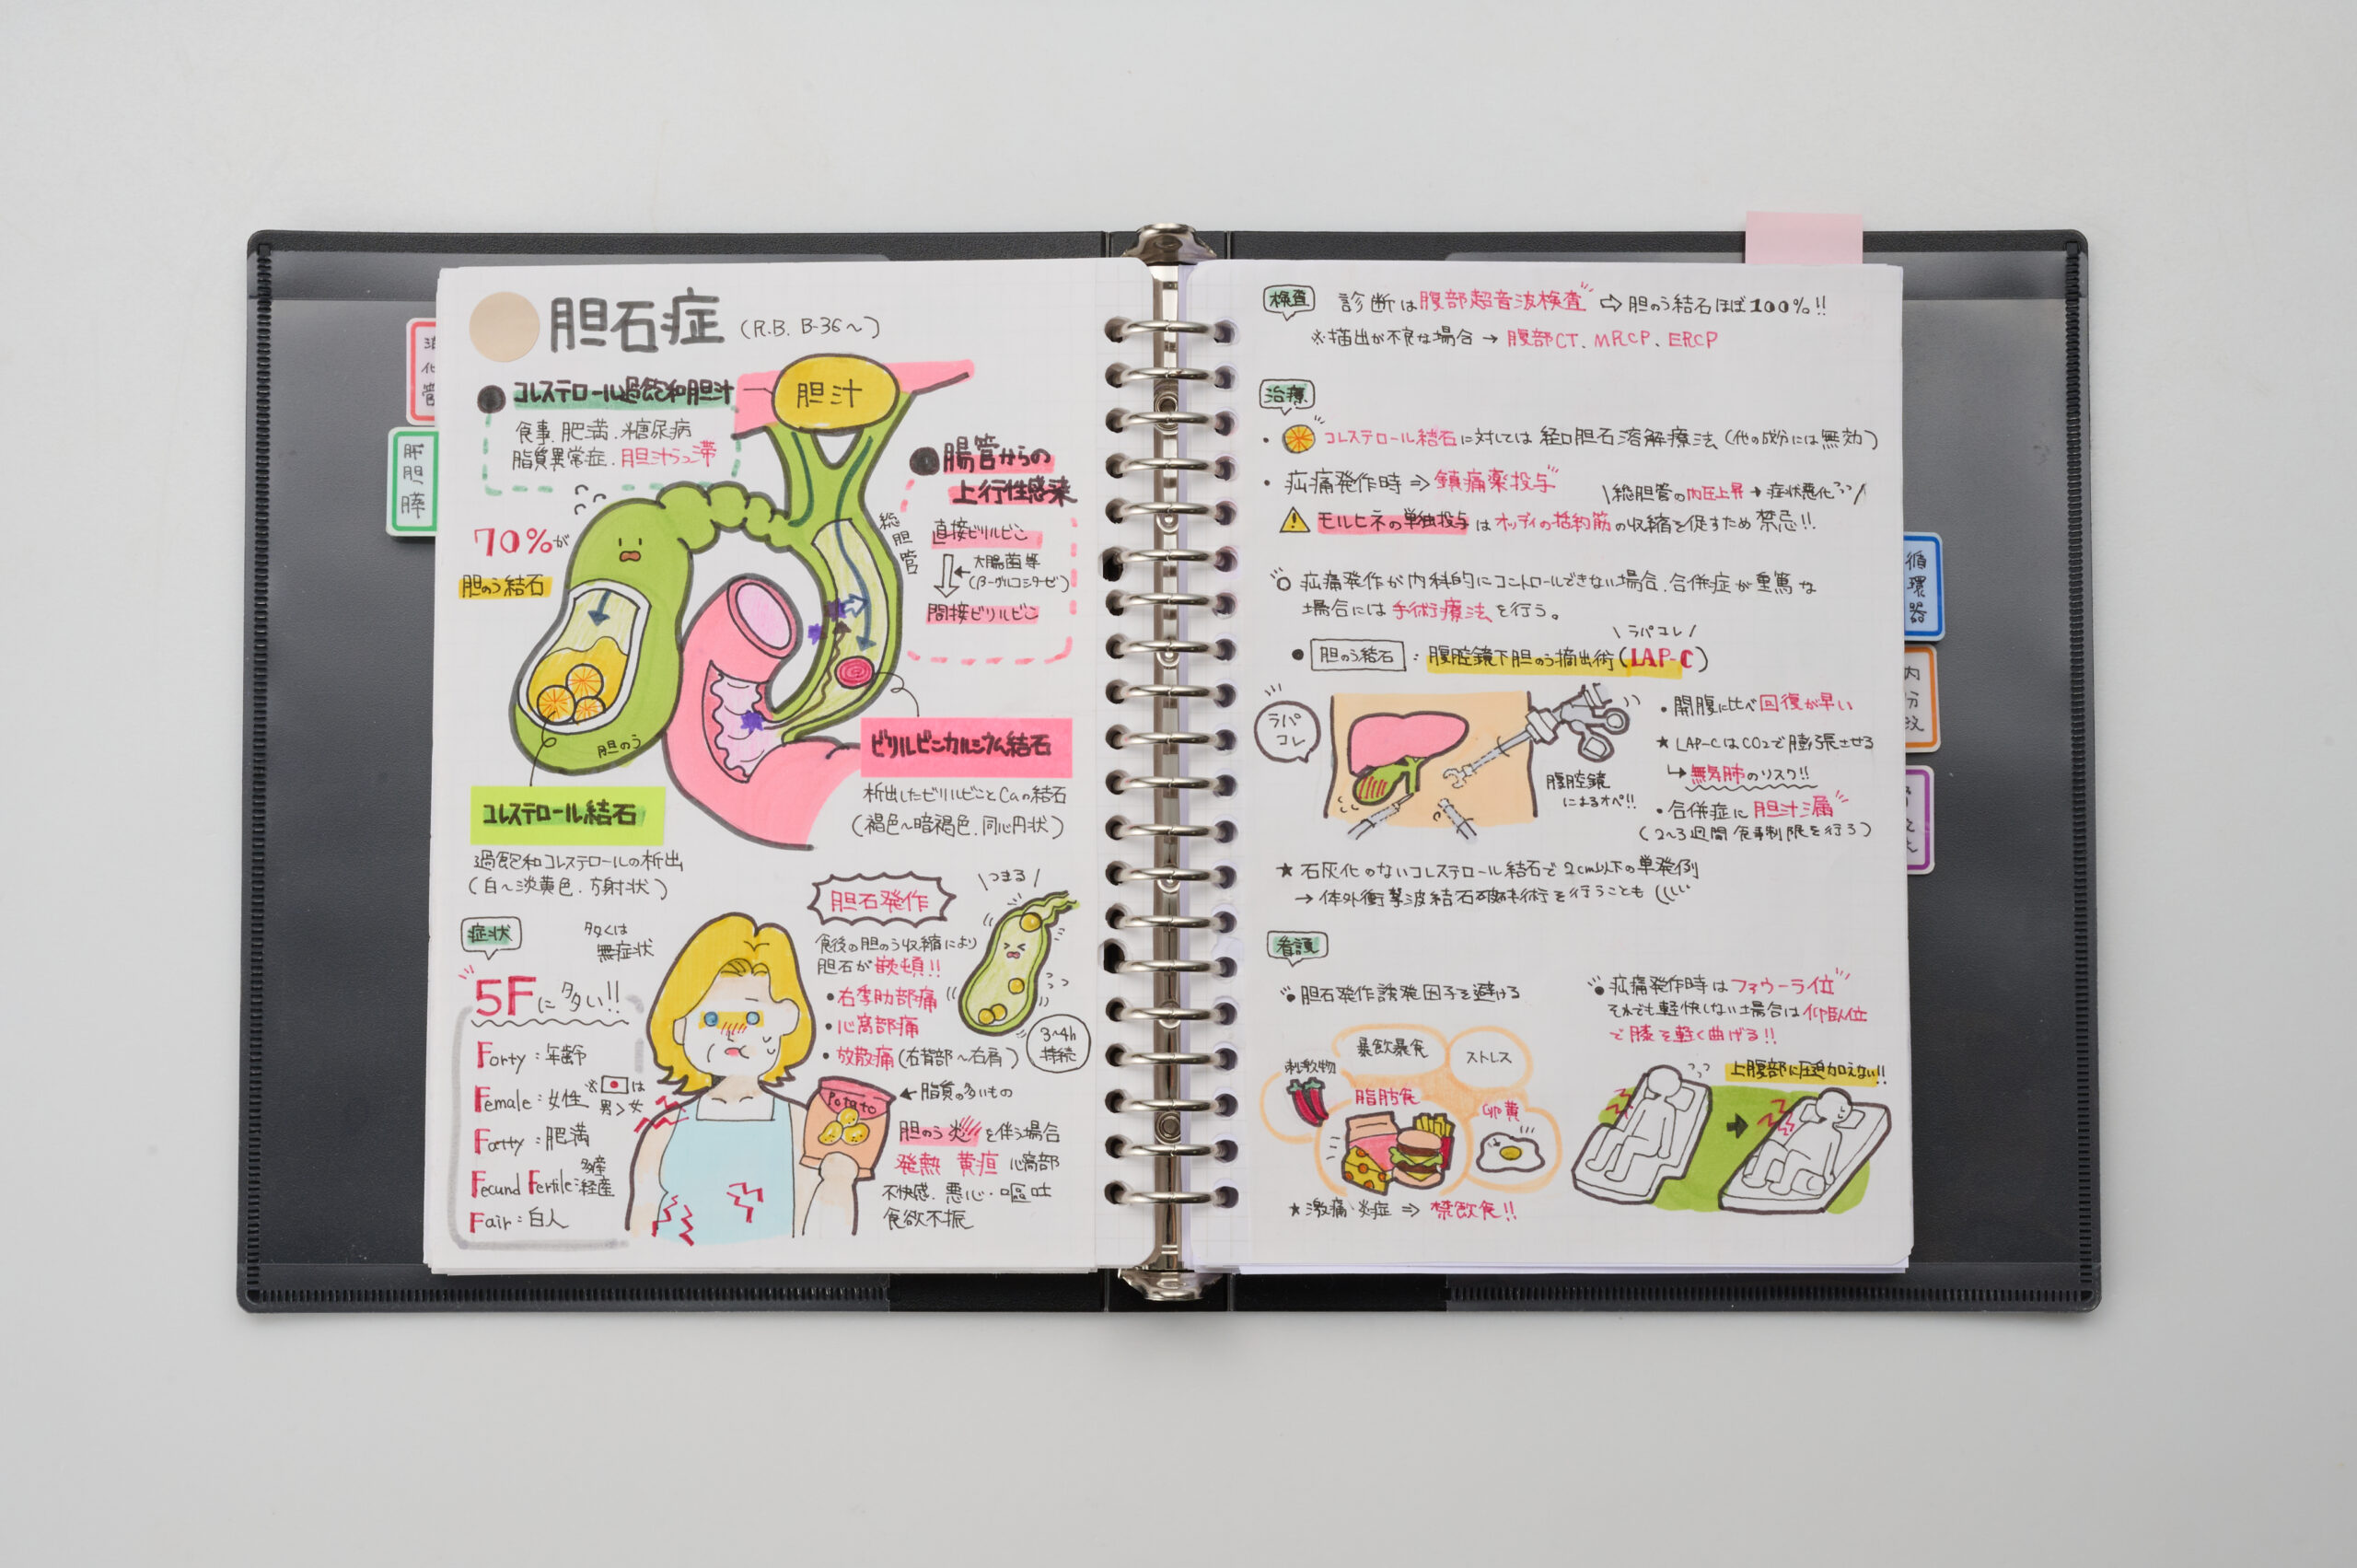 胆石症 (R.B. B-36～)
コレステロール過飽和胆汁
食事.肥満.糖尿病
脂質異常症.胆汁うっ滞
胆汁
腸管からの
上行性感染
直接ビリルビン
大腸菌等
(β-グルコシダーゼ)
間接ビリルビン
総胆管
70%が
胆のう結石
胆のう
コレステロール結石
過飽和コレステロールの析出
(白～淡黄色.放射状)
ビリルビンカルシウム結石
析出したビリルビンとCaの結石
(褐色～暗褐色.同心円状)
症状
多くは
無症状
5Fに多い!!
Forty:年齢
Female:女性 ※は
男>女
Fatty:肥満
Fecund Fertile:多産
経産
Fair:白人
Potato
胆石発作
つまる
食後の胆のう収縮により
胆石が嵌頓!!
・右季肋部痛
・心窩部痛
・放散痛(右背部～右肩)
3～4h
持続
←脂質の多いもの
胆のう炎を伴う場合
発熱 黄疸 心窩部
不快感.悪心・嘔吐
食欲不振
検査
診断は腹部超音波検査⇨胆のう結石ほぼ100%!!
※描出が不良な場合→腹部CT、MRCP、ERCP
治療
・コレステロール結石に対しては経口胆石溶解療法(他の成分には無効)
・疝痛発作時⇒鎮痛薬投与
総胆管の内圧上昇→症状悪化
モルヒネの単独投与はオッディの括約筋の収縮を促すため禁忌!!
疝痛発作が内科的にコントロールできない場合.合併症が重篤な
場合には手術療法を行う。
ラパコレ
●胆のう結石:腹腔鏡下胆のう摘出術(LAP-C)
ラパ
コレ
腹腔鏡
によるオペ!!
・開腹に比べ回復が早い
★LAP-CはCO2で膨張させる
↳無気肺のリスク!!
・合併症に胆汁漏
(2～3週間食事制限を行う)
★石灰化のないコレステロール結石で2cm以下の単発例
→体外衝撃波結石破砕術を行うことも
看護
胆石発作誘発因子を避ける
刺激物
暴飲暴食
ストレス
脂肪食
卵黄
★激痛 炎症⇒禁飲食!!
疝痛発作時はファウーラ位
それでも軽快しない場合は仰臥位
で膝を軽く曲げる!!
上腹部に圧迫加えない!!
消化管
肝胆膵
循環器
内分泌